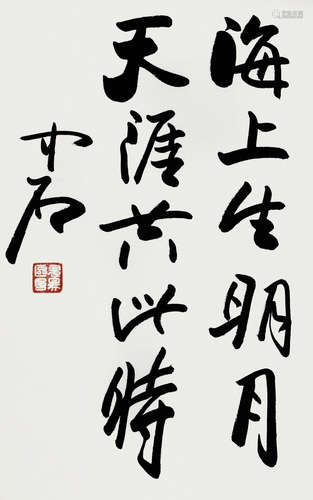 海上生明月
天涯共此时
大石